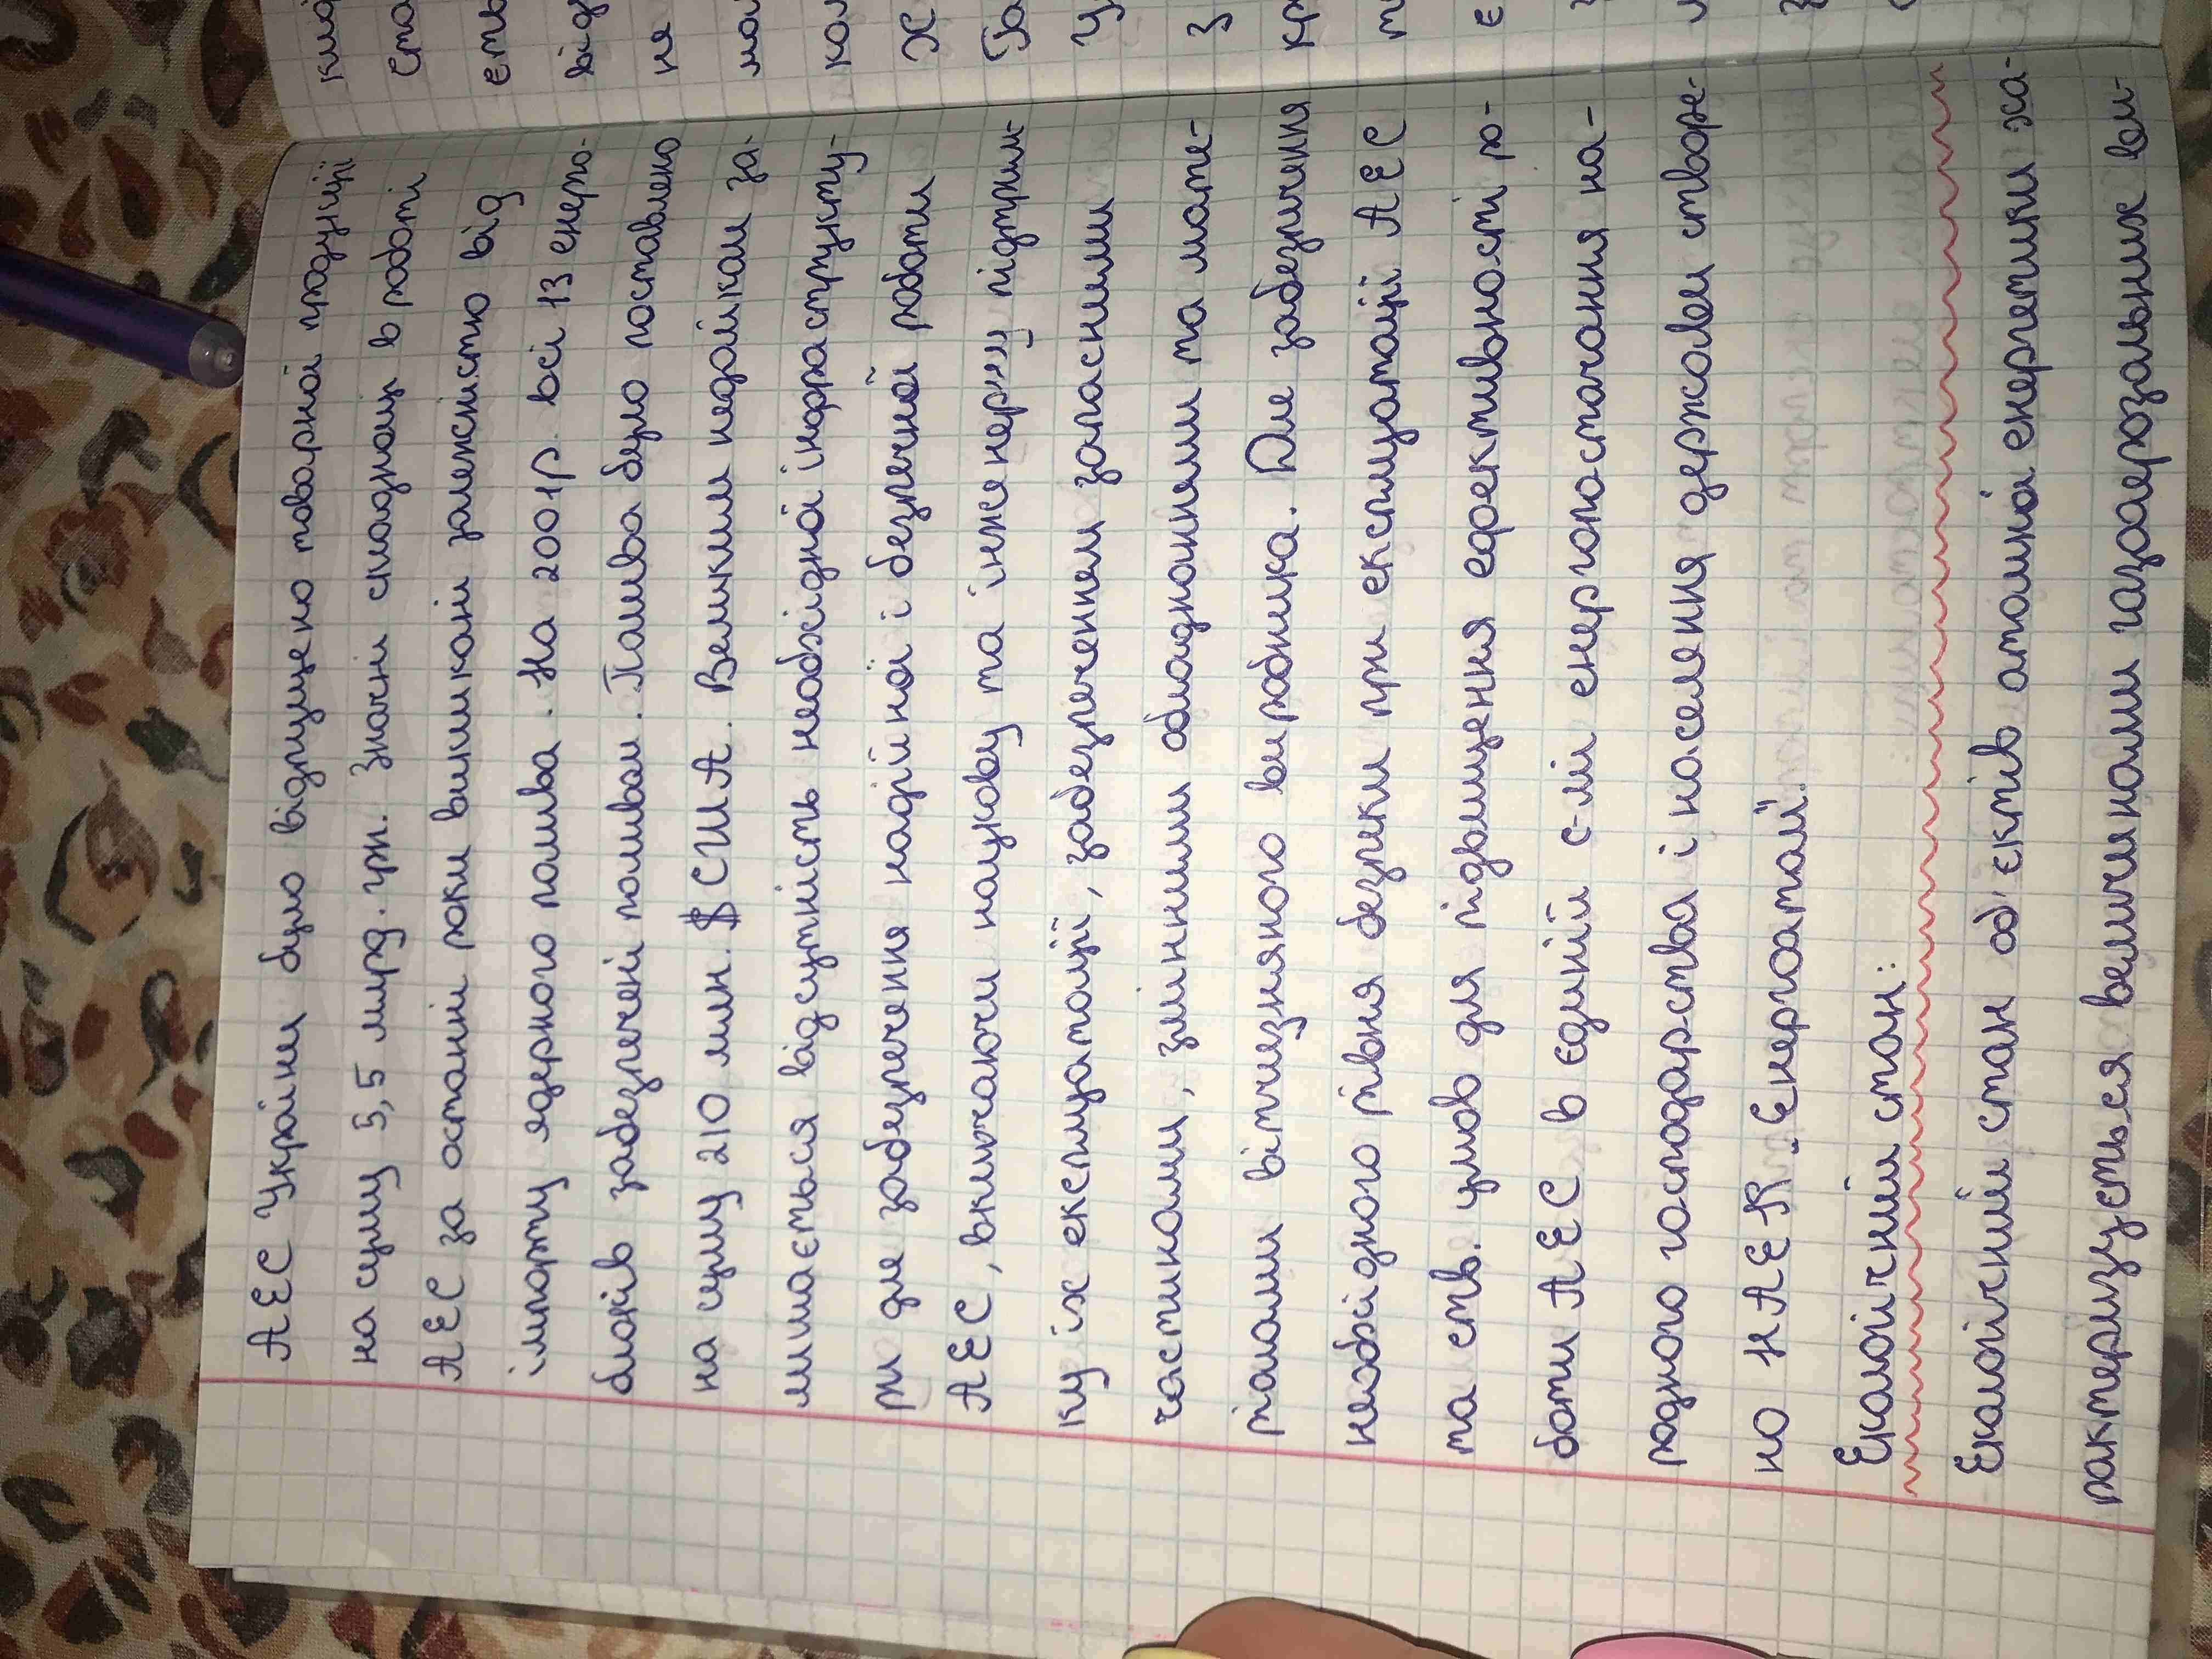 АЕС України було відпущено товарної продукції
на суму 5,5 млрд. грн. Значні складнощі в роботі
АЕС за останні роки викликані залежністю від
імпорту ядерного палива. На 2001р. всі 13 енерго-
блоків забезпечені паливом. Палива було поставлено
на суму 210 млн. $ США. Великим недоліком за-
лишається відсутність необхідної інфраструкту-
ри для забезпечення надійної і безпечної роботи
АЕС, включаючи наукову та інженерну підтрим-
ку їх експлуатації, забезпеченням запасними
частинами, змінними обладнанням та мате-
ріалами вітчизняного виробника. Для забезпечення
необхідного рівня безпеки при експлуатації АЕС
та ств. умов для підвищення ефективності ро-
боти АЕС в єдиній с-мі енергопостачання на-
родного господарства і населення держави створе-
но НАЕК „Енергоатом".
Екологічний стан:
Екологічний стан об'єктів атомної енергетики ха-
рактеризується величинами газоаерозольних ви-
кид
ста
єть
від
не
мол
кол
Х
Га
У
З
кр
є